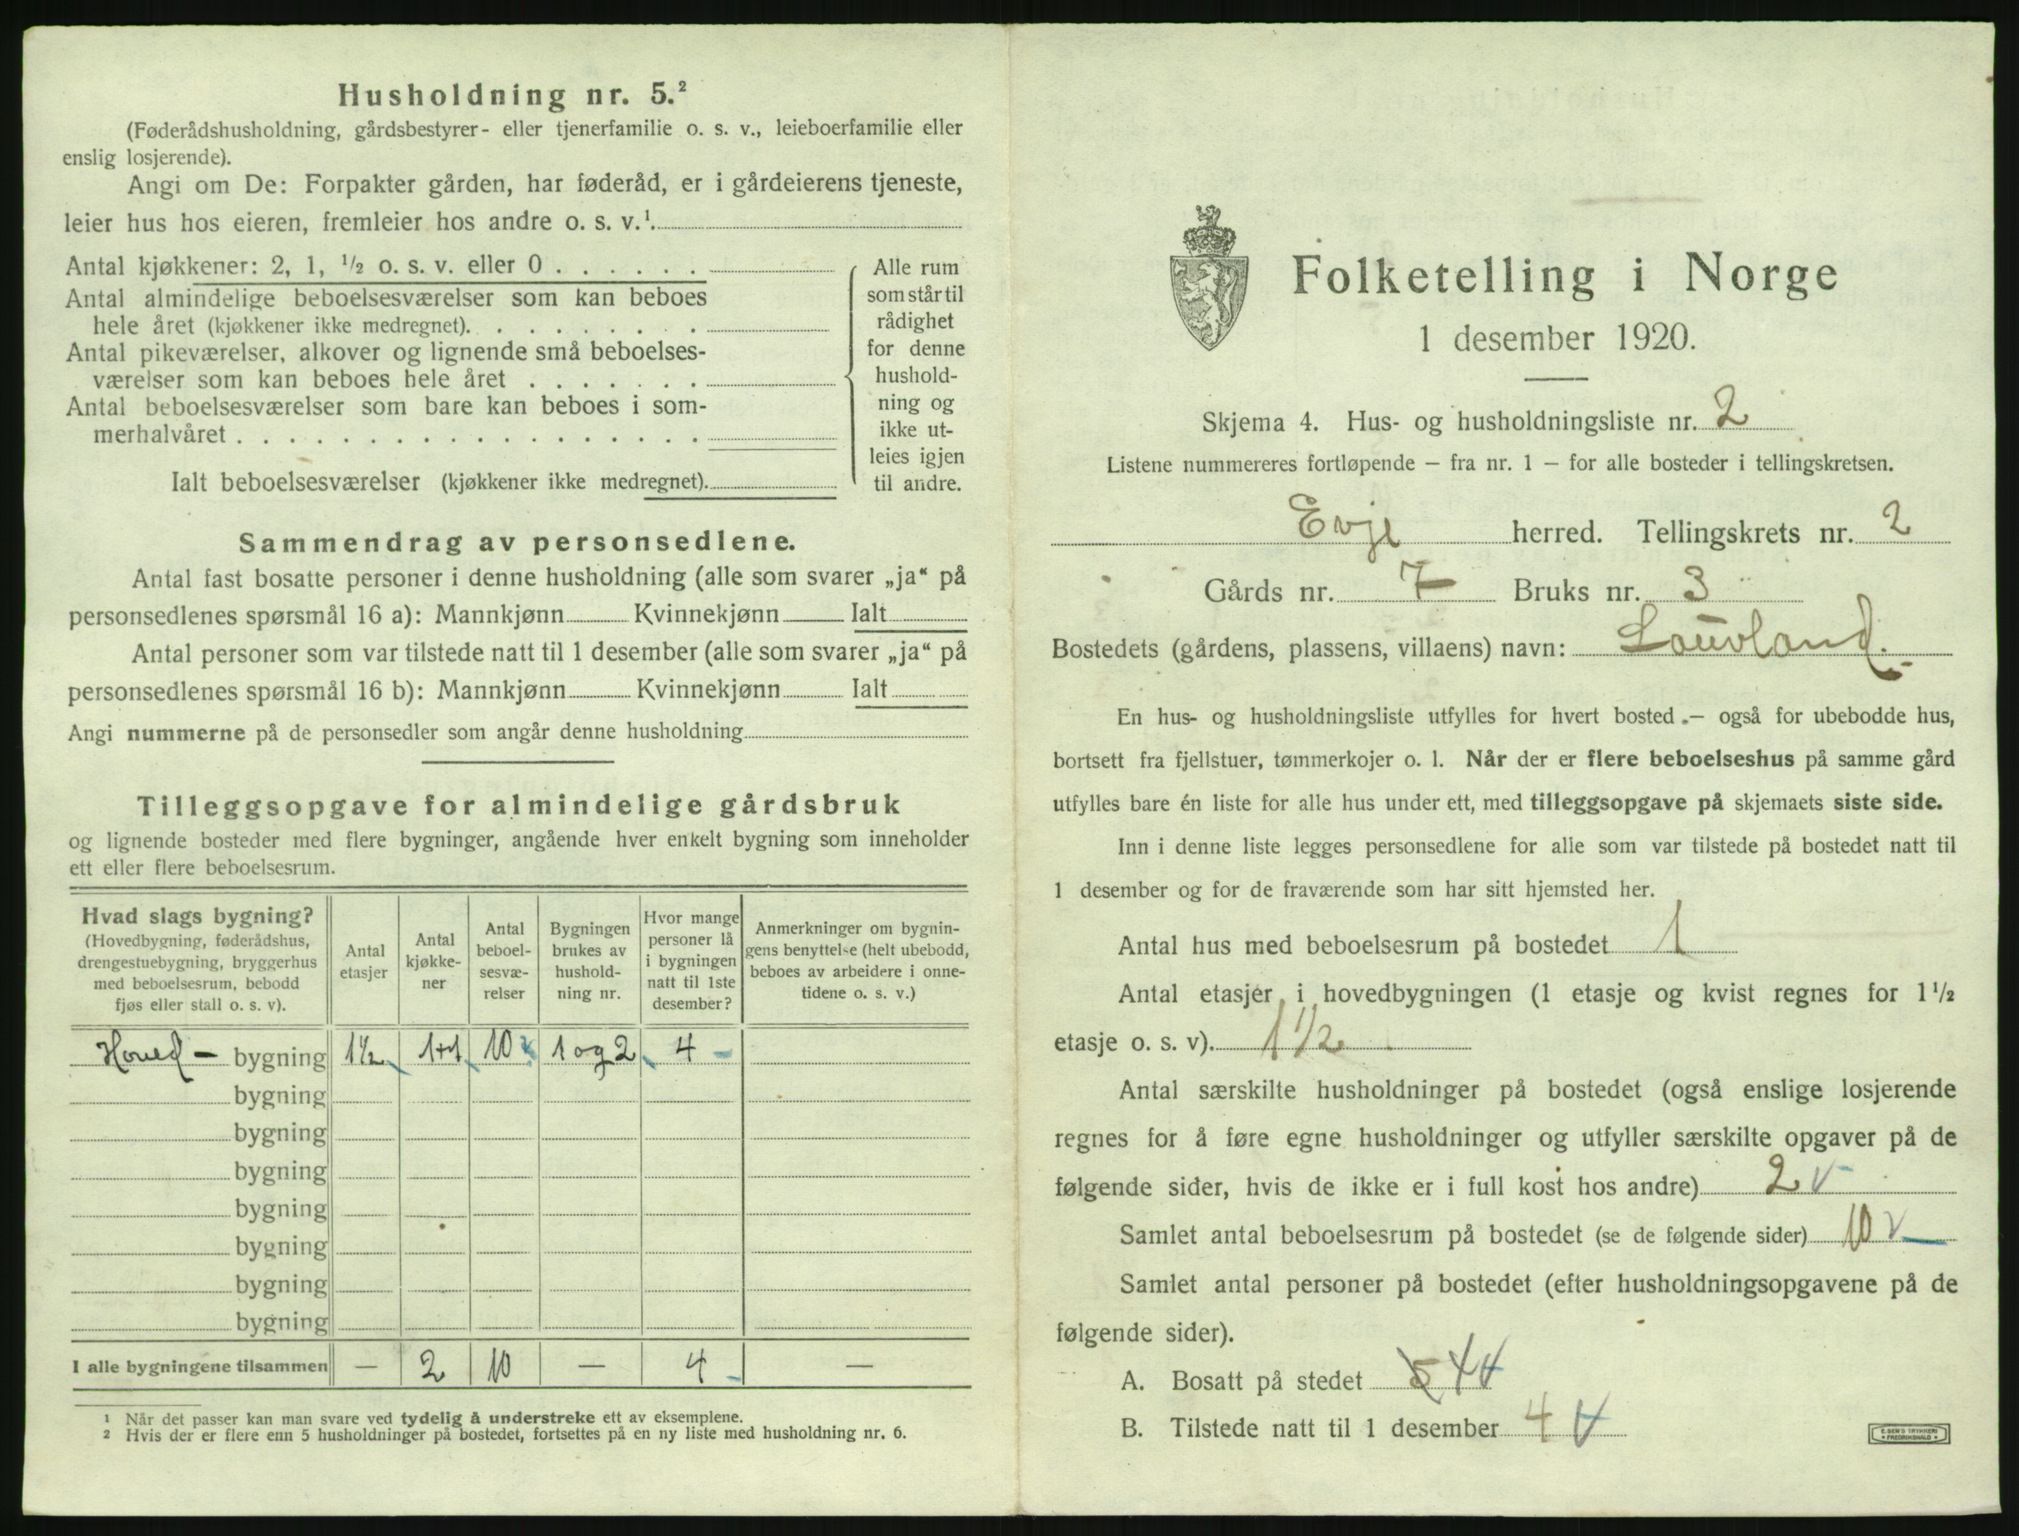 Husholdning nr. 5.²
(Føderådshusholdning, gårdsbestyrer- eller tjenerfamilie o. s. v., leieboerfamilie eller
enslig losjerende).
Angi om De: Forpakter gården, har føderåd, er i gårdeierens tjeneste,
leier hus hos eieren, fremleier hos andre o. s. v.¹
Antal kjøkkener: 2, 1, ½ o. s. v. eller 0 . . . . . .
Antal almindelige beboelsesværelser som kan beboes
hele året (kjøkkener ikke medregnet). . . . . . . . .
Antal pikeværelser, alkover og lignende små beboelses-
værelser som kan beboes hele året . . . . . . .
Antal beboelsesværelser som bare kan beboes i som-
merhalvåret . . . . . . . . . . . . . . . . . .
Ialt beboelsesværelser (kjøkkener ikke medregnet).
Alle rum
som står til
rådighet
for denne
hushold-
ning og
ikke ut-
leies igjen
til andre.
Sammendrag av personsedlene.
Antal fast bosatte personer i denne husholdning (alle som svarer „ja“ på
personsedlenes spørsmål 16 a): Mannkjønn Kvinnekjønn Ialt
Antal personer som var tilstede natt til 1 desember (alle som svarer „ja“ på
personsedlenes spørsmål 16 b): Mannkjønn Kvinnekjønn Ialt
Angi nummerne på de personsedler som angår denne husholdning
Tilleggsopgave for almindelige gårdsbruk
og lignende bosteder med flere bygninger, angående hver enkelt bygning som inneholder
ett eller flere beboelsesrum.
Hvad slags bygning?
(Hovedbygning, føderådshus,
drengestuebygning, bryggerhus
med beboelsesrum, bebodd
fjøs eller stall o. s. v).
Antal
etasjer
Antal
kjøkke-
ner
Antal
beboel-
sesvæ-
relser
Bygningen
brukes av
hushold-
ning nr.
Hvor mange
personer lå
i bygningen
natt til 1ste
desember?
Anmerkninger om bygnin-
gens benyttelse (helt ubebodd,
beboes av arbeidere i onne-
tidene o. s. v.)
Hoved - bygning 1½ 1+1 10 v 1 og 2 4 -
bygning
bygning
bygning
bygning
bygning
bygning
bygning
I alle bygningene tilsammen — 2 10 — 4 —
¹ Når det passer kan man svare ved tydelig å understreke ett av eksemplene.
² Hvis der er flere enn 5 husholdninger på bostedet, fortsettes på en ny liste med husholdning nr. 6.
Folketelling i Norge
1 desember 1920.
Skjema 4. Hus- og husholdningsliste nr. 2
Listene nummereres fortløpende – fra nr. 1 – for alle bosteder i tellingskretsen.
Evje herred. Tellingskrets nr. 2
Gårds nr. 7 Bruks nr. 3
Bostedets (gårdens, plassens, villaens) navn: Lauvland.
En hus- og husholdningsliste utfylles for hvert bosted – også for ubebodde hus,
bortsett fra fjellstuer, tømmerkojer o. l. Når der er flere beboelseshus på samme gård
utfylles bare én liste for alle hus under ett, med tilleggsopgave på skjemaets siste side.
Inn i denne liste legges personsedlene for alle som var tilstede på bostedet natt til
1 desember og for de fraværende som har sitt hjemsted her.
Antal hus med beboelsesrum på bostedet 1
Antal etasjer i hovedbygningen (1 etasje og kvist regnes for 1½
etasje o. s. v). 1½
Antal særskilte husholdninger på bostedet (også enslige losjerende
regnes for å føre egne husholdninger og utfyller særskilte opgaver på de
følgende sider, hvis de ikke er i full kost hos andre) 2 v
Samlet antal beboelsesrum på bostedet (se de følgende sider) 10 v
Samlet antal personer på bostedet (efter husholdningsopgavene på de
følgende sider).
A. Bosatt på stedet 5 4 v
B. Tilstede natt til 1 desember 4 v
E. SEM'S TRYKKERI
FREDRIKSHALD